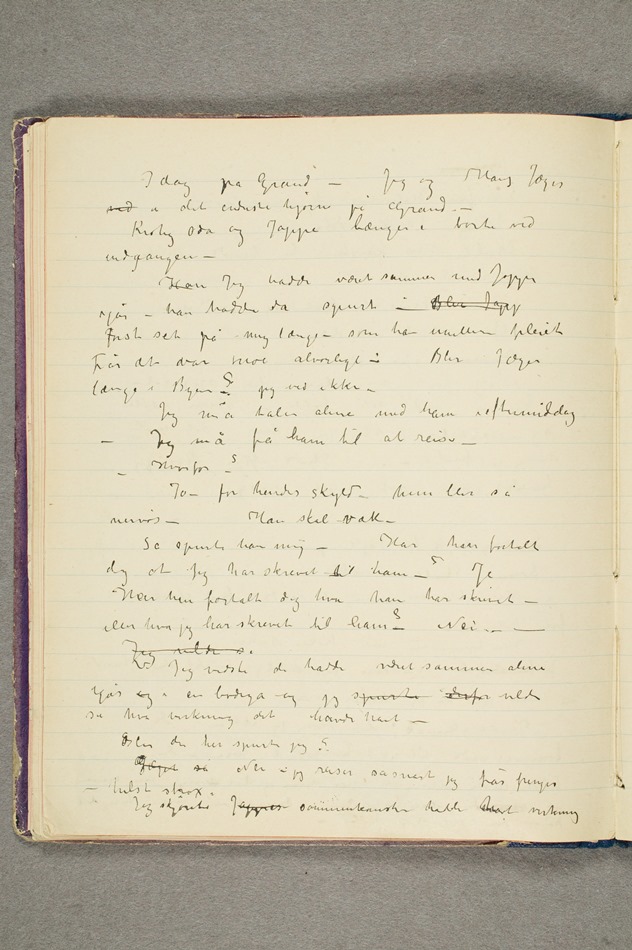 I dag på Grand – Jeg og Hans Jæger
ved i det inderste hjørne på Grand –
Krohg Oda og Jappe længere borte ved
indgangen –
Han Jeg hadde været sammen med Jappe
igår – han hadde da spurt – Blir Japp
først set på mig længe – som han
Før det var noe alvorligt – Blir Jæger
længe i Byen? jeg ved ikke –
Jeg må tale alene med ham i eftermiddag
– Jeg må få ham til at reise –
– Hvorfor –?
Jo – for hendes skyld – hun blir så
nervøs – Han skal væk –
Så spurte han mig – Har han fortalt
dig at Jeg har skrevet til ham –? Ja
Har han fortalt dig hva han har skrevet –
eller hva jeg har skrevet til ham? Nei –
Jeg vilde se
Jeg vidste de hadde været sammen alene
igår og i en bodega – og jeg spurte derfor vilde
se hva virkning det havde havt –
Blir du her spurte jeg?
Nei – jeg reiser såsnart jeg får penger
– helst strax.
Jeg skjønte Jappes sammenkomsten hadde havt virkning